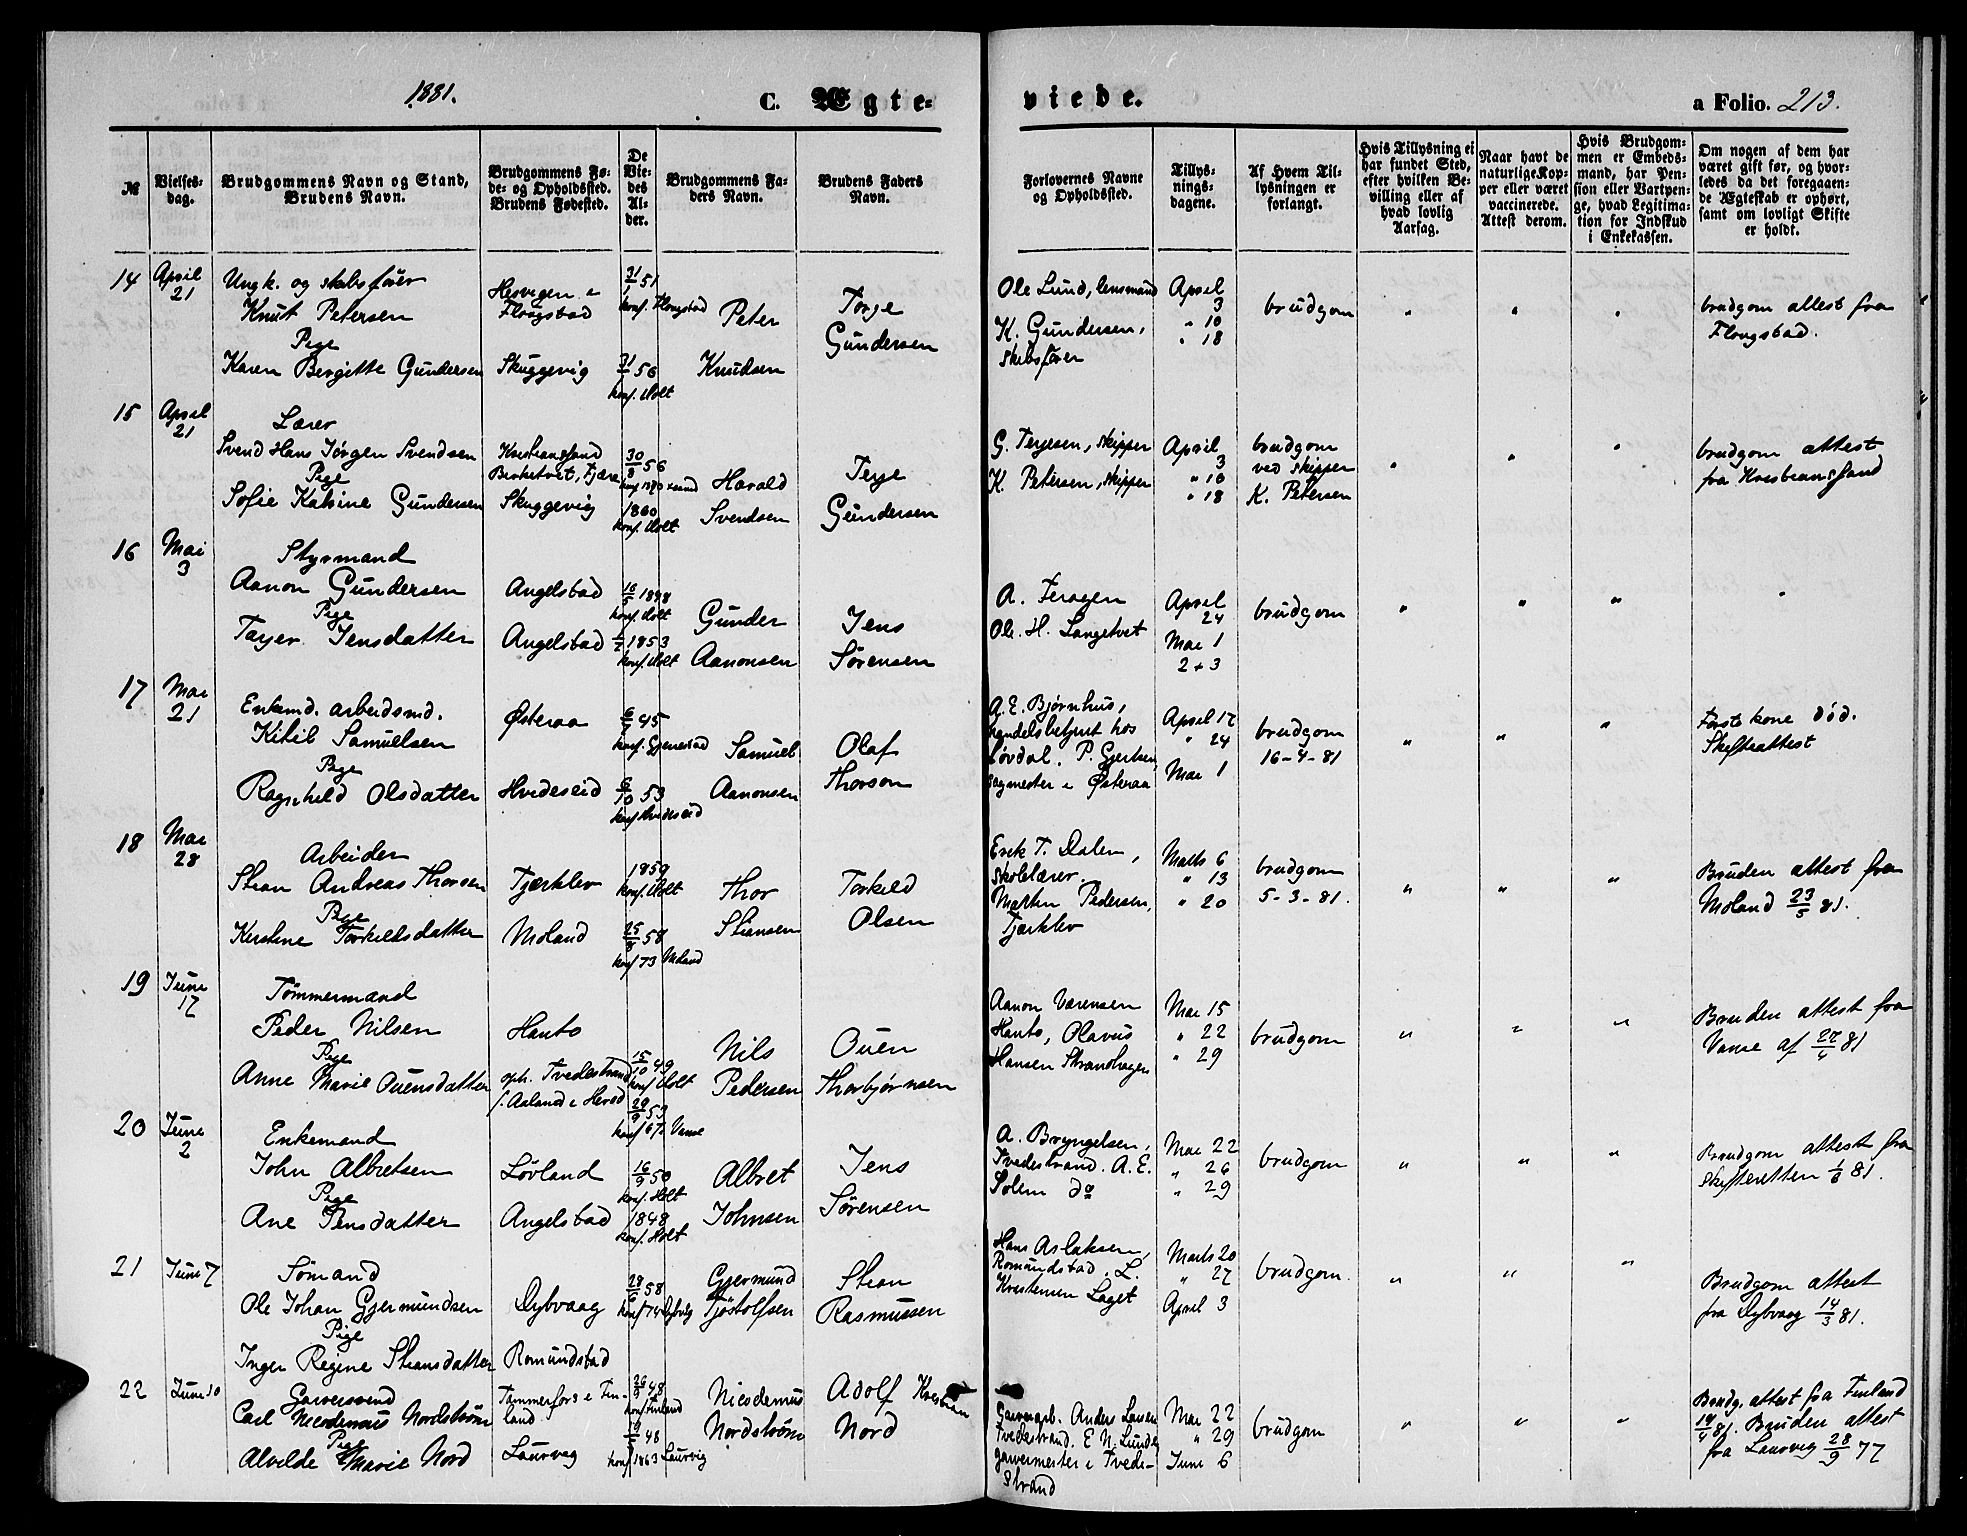 1881.
C. Ægte-
viede.
a Folio. 213.
№
Vielses-
dag.
Brudgommens Navn og Stand,
Brudens Navn.
Brudgommens Fø-
de- og Opholdssted.
Brudens Fødested.
De
Vie-
des
Al-
der.
Brudgommens Fa-
ders Navn.
Brudens Faders
Navn.
Forlovernes Navne
og Opholdssted.
Tillys-
nings-
dagene.
Af Hvem Til-
lysningen er
forlangt.
Hvis Tillysning ei
har fundet Sted,
efter hvilken Be-
villing eller af
hvad lovlig
Aarsag.
Naar havt de
naturlige Kop-
per eller været
vaccinerede.
Attest derom.
Hvis Brudgom-
men er Embeds-
mand, har Pen-
sion eller Vartpen-
ge, hvad Legitima-
tion for Indskud
i Enkekassen.
Om nogen af dem har
været gift før, og hvor-
ledes da det foregaaen-
de Ægteskab er ophørt,
samt om lovligt Skifte
er holdt.
14 April 21
Ungk. og skibsfører
Knut Petersen
Pige
Karen Bergitte Gundersen
Hesvegen i
Flougstad
Skuggevig
31/1 51
konf. Flougstad
31/1 56
konf. Holt
Peter
Knudsen
Torge
Gundersen
Ole Lund, lensmand
K. Gundersen,
skibsfører
April
3
" 10
" 18
brudgom
"
"
"
brudgom attest fra
Flougstad.
15 April 21
Lærer
Svend Hans Jørgen Svendsen
Pige
Sofie Katrine Gundersen
Kristiansand
Birketvet, Fjære
Skuggevig
30/8 56
1860
konf. Holt
Harald
Svendsen
Terje
Gundersen
G. Terjesen, skipper
K. Petersen, skipper
April
3
" 10
" 18
brudgom
ved skipper
K. Petersen
"
"
"
brudgom attest
fra Kristianssand
16 Mai 3
Styrmand
Aanon Gundersen
Pige
Tayer Jensdatter
Angelstad
Angelstad
16/5 1848
konf. Holt
1/2 1853
konf. Holt
Gunder
Aanonsen
Jens
Sørensen
A. Feragen
Ole H. Langetvet
April
24
Mai 1
2 + 3
brudgom
"
"
"
"
17 Mai 21
Enkemd. arbeidsmd.
Kitil Samuelsen
Pige
Ragnhild Olsdatter
Østeraa
Hvideseid
6/7 45
konf. Gjerrestad
6/10 53
konf Hvideseid
Samuel
Aanonsen
Olaf
Thorson
A. E. Bjørnhus,
handelsbetjent hos
Løvdal. P. Gjertsen,
sagmester i Østeraa
April 17
" 24
Mai 1
brudgom
16-4-81
"
"
"
Første kone død.
Skifteattest
18 Mai 28
Arbeider
Stian Andreas Thorsen
Pige
Kirstine Torkildsdatter
Tjærklev
Moland
1859
konf. Holt
25/8 58
konf 73 Moland
Thor
Stiansen
Torkild
Olsen
Erik T. Dalen,
skolelærer.
Martin Pedersen,
Tjærklev
Marts 6
" 13
" 20
brudgom
5-3-81.
"
"
"
Bruden attest fra
Moland 23/5 81.
19 Juni 17
Tømmermand
Peder Nilsen
Pige
Anne Marie Ouensdatter
Hanto
oph. Tvedestrand
f. Aaland i Herad
15/10 49
konf Holt
29/9 53
konf 67 i Vanse
Nils
Pedersen
Ouen
Thorbjørnsen
Aanon Værensen
Hanto, Olavus
Hansen Strandhagen
Mai 15
" 22
" 29
brudgom
"
"
"
Bruden attest fra
Vanse af 27/4 81
20 Juni 2
Enkemand
John Albretsen
Pige
Ane Jensdatter
Løvland
Angelstad
16/9 50
konf. Holt
1848
konf. Holt
Albret
Johnsen
Jens
Sørensen
A. Bryngelsen,
Tvedestrand. A. E.
Solem do
Mai 22
" 26
" 29
brudgom
"
"
"
Brudgom attest fra
skifteretten 1/6 81.
21 Juni 7
Sømand
Ole Johan Gjermundsen
Pige
Inger Regine Stiansdatter
Dybvaag
Romundstad
28/6 58
konf 74 Dybvig
Gjermund
Tjöstolfsen
Stian
Rasmussen
Hans Aslaksen,
Romundstad. L.
Kristensen Laget
Marts 20
" 27
April 3
brudgom.
"
"
"
Brudgom attest
fra Dybvaag 14/3 81.
22 Juni 10
Garversvend
Carl Nicodemus Nordstrøm
Pige
Alvilde Marie Nord
Tammerfors i Fin-
land.
Laurvig
26/9 48
konf Finland
9/7 48
konf 1863 Laurvig
Nicodemus
Nordstrøm
Adolf Kristian
Nord
Garverarb. Anders Larsen
Tvedestrand. E N. Lunde
garvermester i Tvede-
strand
Mai 22
" 29
Juni 6
brudgom
"
"
"
Brudg. attest fra Finland
19/4 81. Bruden attest
fra Laurvig 28/9 77